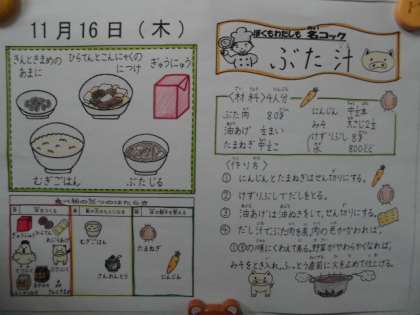 11月16日(木)
きんときまめの
あまに
ひらてんとこんにゃくの
につけ
ぎゅうにゅう
むぎごはん
ぶたじる
食べ物の三つのはたらき
むぎごはん
さんおんとう
たまねぎ
にんじん
ぼくもわたしも 名コック
ぶた汁
<材料>4人分
ぶた肉 80g
油あげ
たまねぎ
にんじん
みそ
けずりぶし 8g
水 800cc
<作り方>
① にんじんとたまねぎはせん切りにする。
② けずりぶしでだしをとる。
③ 油あげは油ぬきをして、せん切りにする。
④ だし汁でぶた肉を煮、肉の色がかわれば、
①③の順にくわえて煮る。野菜がやわらかくなれば、
みそをとき入れ、ふっとう直前に火を止めて仕上げる。